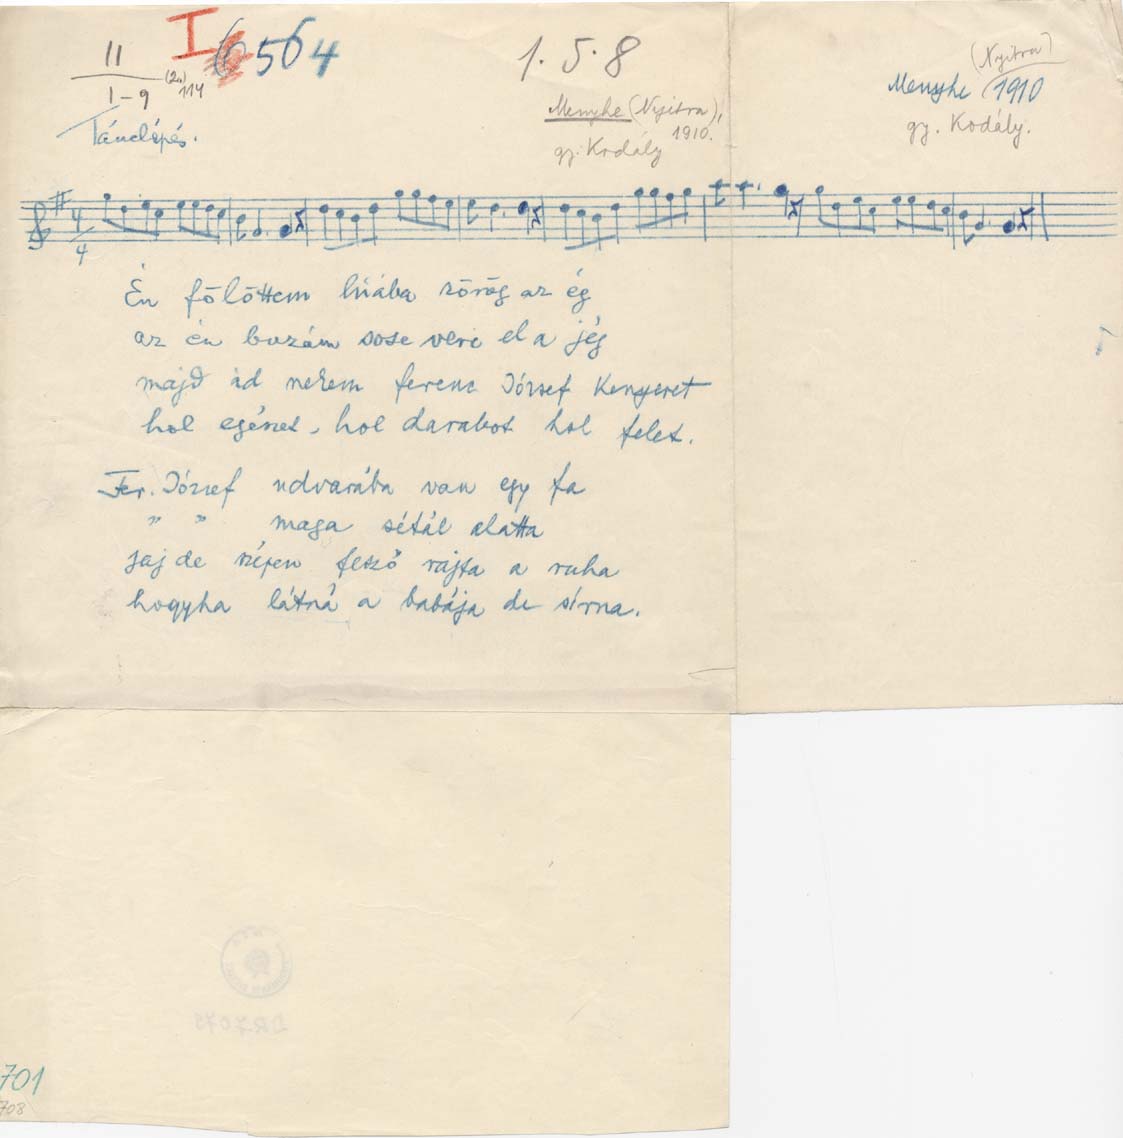 I 6564
11
1-9
(2.) 114
Tánclépés.
1. 5. 8
Menyhe (Nyitra),
1910.
gy. Kodály
(Nyitra)
Menyhe 1910
gy. Kodály.
4
4
Én fölöttem hiába zörög az ég
az én buzám sose veri el a jég
majd ád nekem ferenc József Kenyeret
hol egészet, hol darabot hol felet.
Fer. József udvarába van egy fa
" " maga sétál alatta
jaj de szépen fesző rajta a ruha
hogyha látná a babája de sírna.
701
708